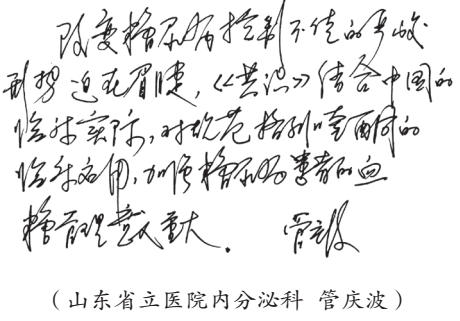 改变糖尿病控制不佳的严峻
形势迫在眉睫，《共识》结合中国的
临床实际，对规范格列喹酮的
临床应用，加强糖尿病患者的血
糖管理意义重大。 管庆波
（山东省立医院内分泌科 管庆波）